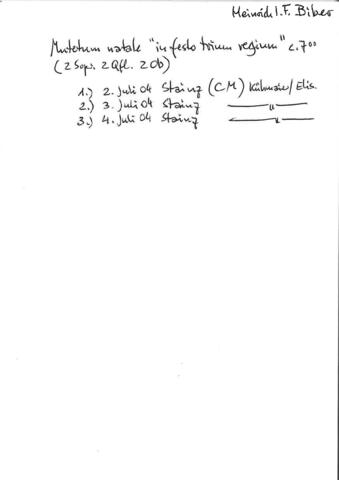 Heinrich I. F. Biber
Mutetum natale "in festo trium regium" c.700
(2 Sop. 2 Qfl. 2 Ob)
1.) 2. Juli 04 Stainz (CM) /Elis.
2.) 3. Juli 04 Stainz —— " ——
3.) 4. Juli 04 Stainz —— " ——